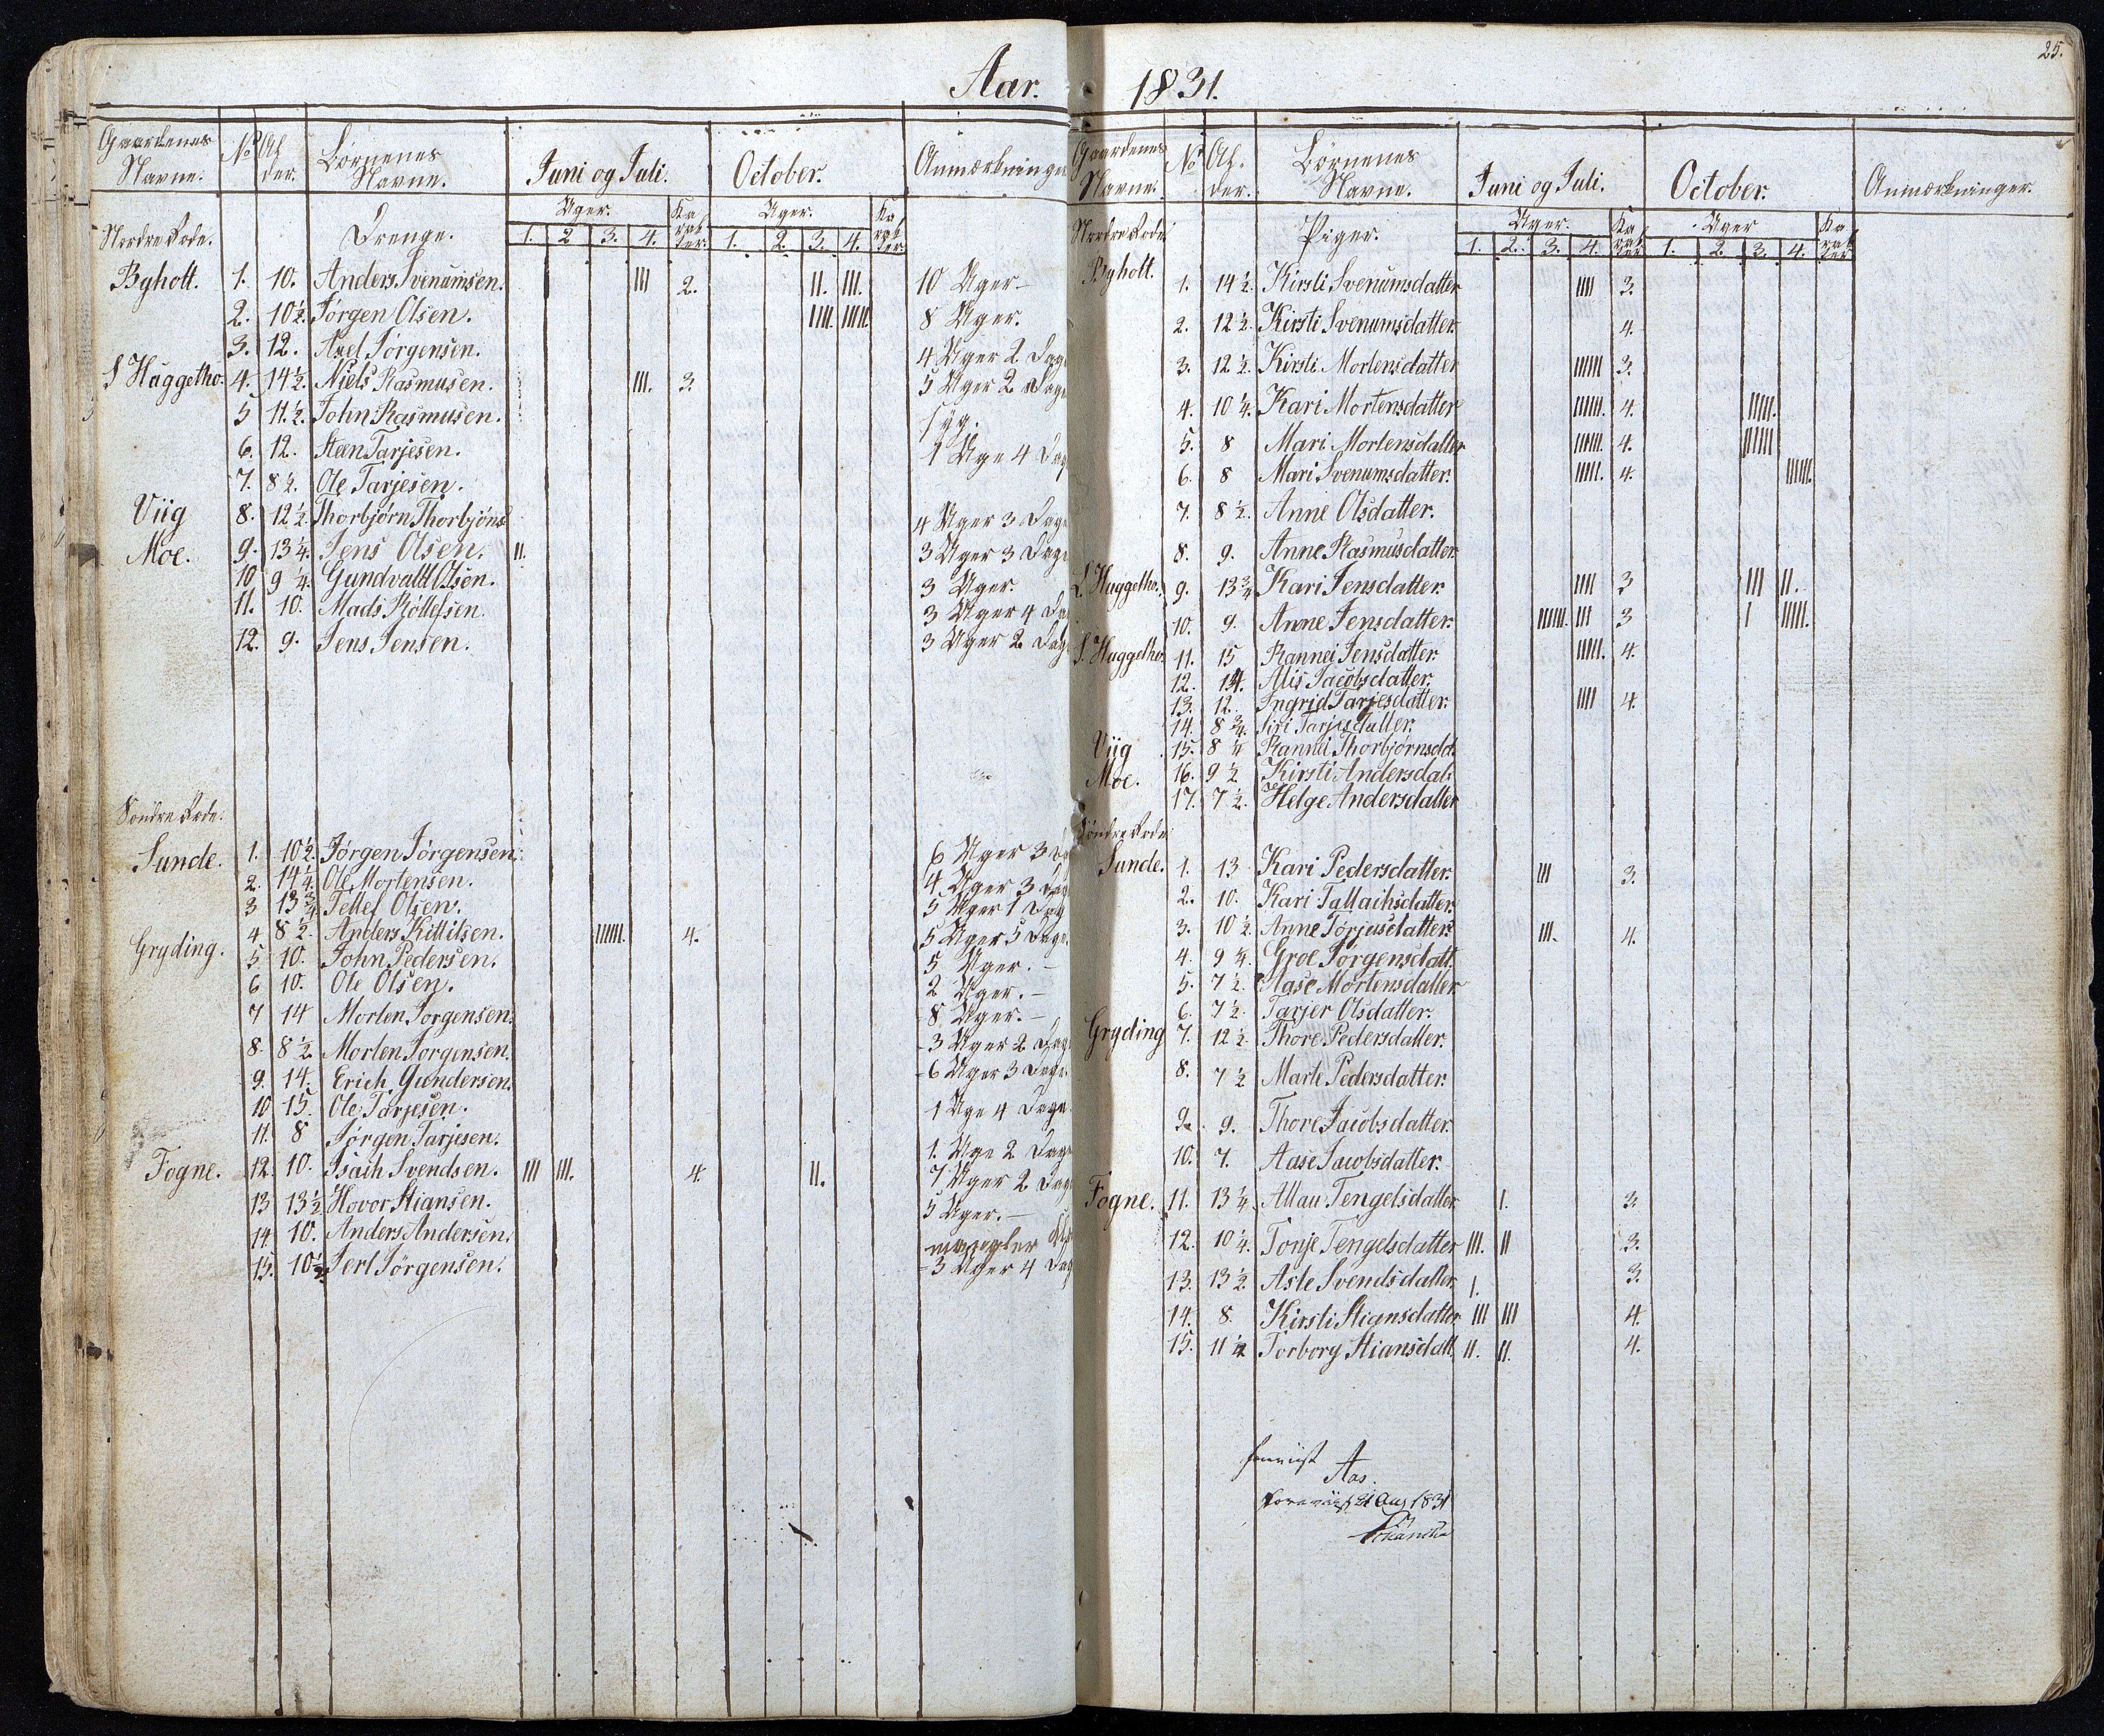 Aar. 1831.
25.
Gaardenes Navne. No Al der. Børnenes Navne. Juni og Juli. October. Anmærkninger
Uger. Ka rak ter. Uger. Ka rak ter.
Nordre Rode. Drenge. 1. 2 3. 4. 1. 2. 3. 4.
Bÿholt. 1. 10. Anders Svenumsen. III 2. II. III. 10 Uger.
2. 10½. Jørgen Olsen. IIII. IIIII. 8 Uger.
3. 12. Axel Jørgensen. 4 Uger 2 Dage
S Haggetho. 4. 14½. Niels Rasmusen. III. 3. 5 Uger 2 Dage
5 11.½. John Rasmusen. syg.
6. 12. Steen Tarjesen. 1 Uge 4 Dag
7. 8½. Ole Tarjesen.
Viig 8. 12½. Thorbjørn Thorbjøns 4 Uger 3 Dage
Moe. 9. 13¼. Jens Olsen. II. 3 Uger 3 Dage
10 9¼. Gundvald Olsen. 3 Uger.
11. 10. Mads Röllefsen. 3 Uger 4 Da
12. 9. Jens Jensen. 3 Uger 2 Dag
Søndre Rode.
Sunde. 1. 10½. Jörgen Jörgensen. 6 Uger 3 Da
2. 14¼. Ole Mortensen. 4 Uger 3 Dag
3 13¾ Tellef Olsen. 5 Uger 1 Dag
4 8½. Anders Kittilsen. IIIIII. 4. 5 Uger 5 Dage.
Gryding. 5 10. John Pedersen. 5 Uger.
6 10. Ole Olsen. 2 Uger.
7 14 Morten Jorgensen. 8 Uger.
8. 8½ Morten Jorgensen. 3 Uger 2 Dag
9. 14. Erich Gundersen. 6 Uger 3 Dage.
10 15. Ole Tarjesen. 1 Uge 4 Dage
11. 8 Jörgen Tarjesen. 1. Uge 2 Dage
Fogne. 12. 10. Isaih Svendsen. III III. 4. II. 7 Uger 2 Dag
13 13½ Hovor Stiansen. 5 Uger.
14 10. Anders Andersen. mangler
15. 10½ Jerl Jörgensen. 3 Uger 4 Dag
Gaardenes Navne. No Al. der. Børnenes Navne. Juni og Juli. October. Anmærkninger.
Uger. Ka rak ter Uger Ka rak ter
Nordre Rode. Piger. 1. 2. 3. 4. 1. 2. 3. 4.
Bÿholt. 1. 14½. Kirsti Svenumsdatter IIII 3.
2. 12½. Kirsti Svenumsdatter. 4.
3. 12½. Kirsti Mortensdatter IIIIII 3.
4. 10¼. Kari Mortensdatter IIIIII. 4. IIIII.
5. 8 Mari Mortensdatter IIIII. 4. IIIII
6. 8 Mari Svenumsdatter. IIIII. 4. IIIII.
7. 8½. Anne Olsdatter.
8. 9. Anne Rasmusdatter.
L. Haggetho. 9. 13¾ Kari Jensdatter. IIII 3 III II.
10. 9. Anne Jensdatter. IIIIII. III 3 I IIIII.
S. Haggetho. 11. 15 Rannei Jensdatter. IIIII. 4.
12. 14. Alis Jacobsdatter.
13. 12. Ingrid Tarjesdatter. IIII 4.
14. 8¾. Siri Tarjesdatter.
Viig 15. 8¼ Rannei Thorbjornsdd.
Moe. 16. 9½ Kirsti Andersdat.
17. 7½. Helge Andersdatter
Søndre Rode
Sunde. 1. 13 Kari Pedersdatter. III 3.
2. 10. Kari Tallaihsdatter.
3. 10½ Anne Törjusdatter. III. 4.
4. 9¼. Groe Jorgensdatt.
5. 7½. Aase Mortensdatter
6. 7½. Tarjer Olsdatter.
Gryding 7. 12½. Thore Pedersdatter.
8. 7½ Marte Pedersdatter.
9. 9. Thore Jacobsdatter.
10. 7. Aase Jacobsdatter.
Fogne. 11. 13¼. Allau Tengelsdatter. I. 3.
12. 10¼. Tonje Tengelsdatter III. II 3.
13. 13½ Asle Svendsdatter. I. 3.
14. 8. Kirsti Stiansdatter III III 4.
15. 11½ Torborg Stiansdatt. II. II. 4.
Aas.
Foreviist 21 Aug 1831